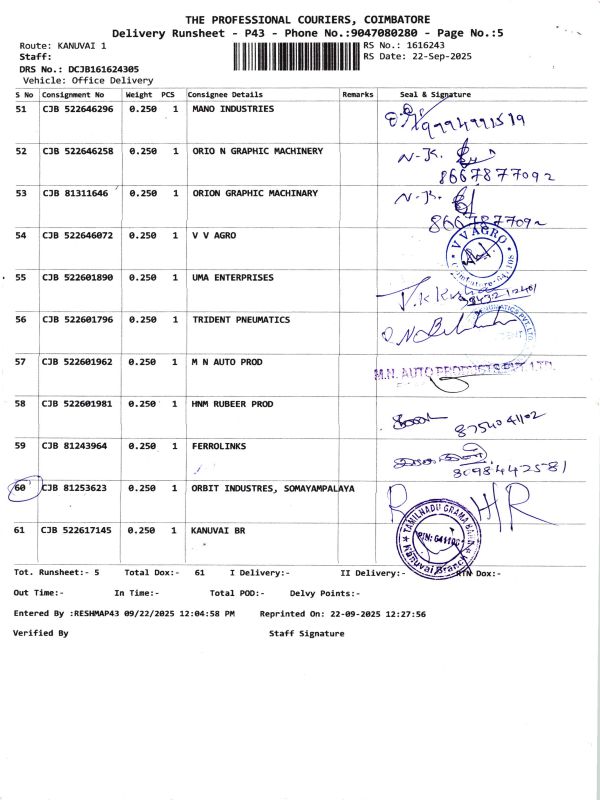 THE PROFESSIONAL COURIERS, COIMBATORE
Delivery Runsheet - P43 - Phone No.:9047080280 - Page No.:5
Route: KANUVAI 1 RS No.: 1616243
Staff: RS Date: 22-Sep-2025
DRS No.: DCJB161624305
Vehicle: Office Delivery
S No Consignment No Weight PCS Consignee Details Remarks Seal & Signature
51 CJB 522646296 0.250 1 MANO INDUSTRIES
52 CJB 522646258 0.250 1 ORIO N GRAPHIC MACHINERY N-K.
8667877092
53 CJB 81311646 0.250 1 ORION GRAPHIC MACHINARY N-K.
8667877092
54 CJB 522646072 0.250 1 V V AGRO V V AGRO
55 CJB 522601890 0.250 1 UMA ENTERPRISES
56 CJB 522601796 0.250 1 TRIDENT PNEUMATICS
57 CJB 522601962 0.250 1 M N AUTO PROD M.N. AUTO PRODUCTS PVT. LTD.
58 CJB 522601981 0.250 1 HNM RUBEER PROD
8754041102
59 CJB 81243964 0.250 1 FERROLINKS
8098442581
60 CJB 81253623 0.250 1 ORBIT INDUSTRES, SOMAYAMPALAYA
61 CJB 522617145 0.250 1 KANUVAI BR TAMILNADU GRAMA BANK Kanuvai Branch
Tot. Runsheet:- 5 Total Dox:- 61 I Delivery:- II Delivery:- RTN Dox:-
Out Time:- In Time:- Total POD:- Delvy Points:-
Entered By :RESHMAP43 09/22/2025 12:04:58 PM Reprinted On: 22-09-2025 12:27:56
Verified By Staff Signature